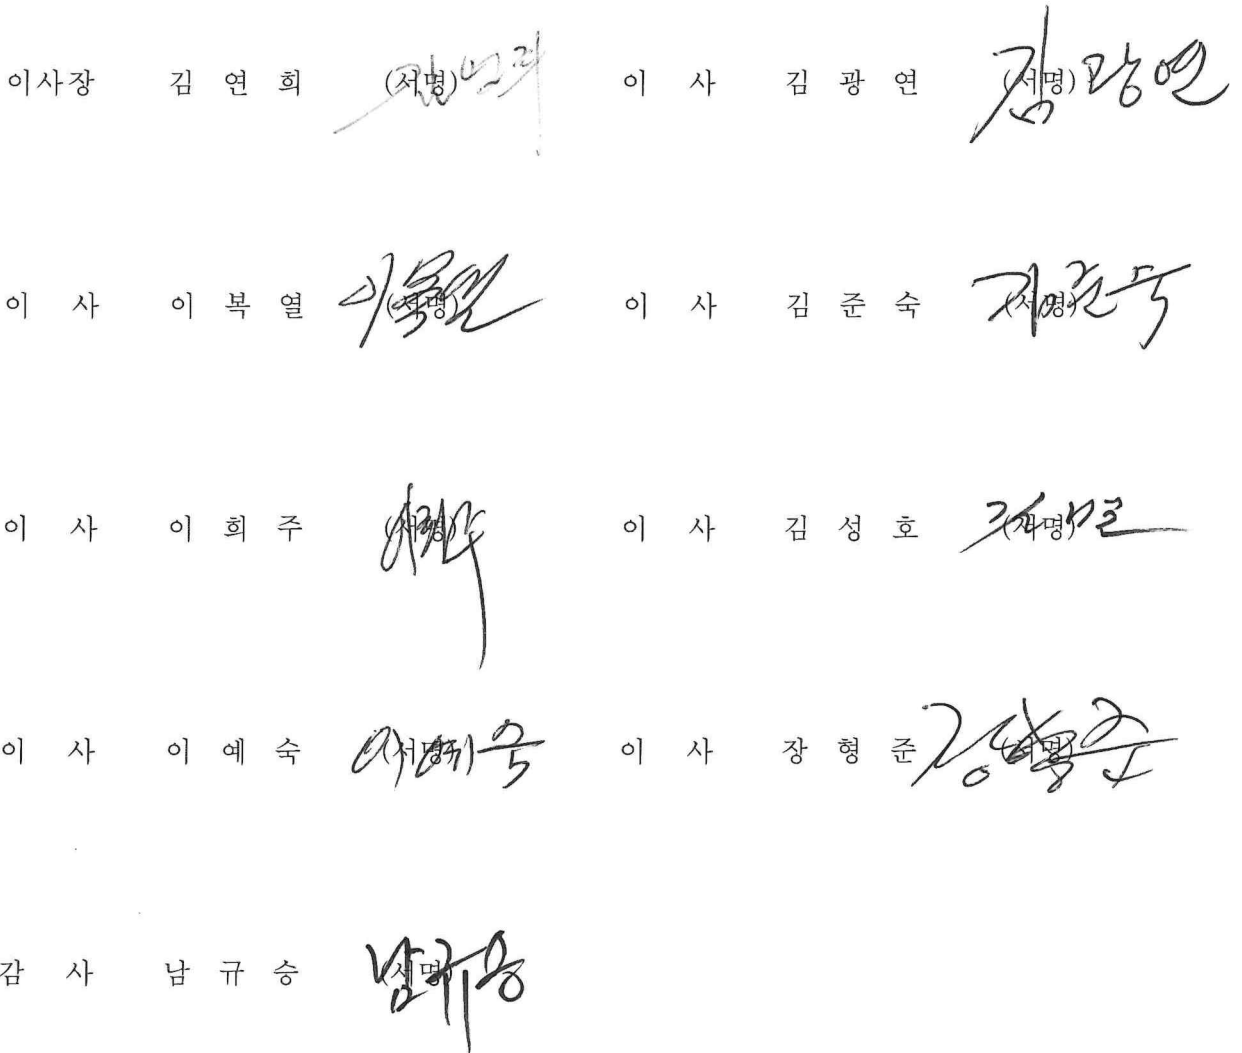 이사장 김 연 희 (서명) 김연희 이 사 김 광 연 (서명) 김광연
이 사 이 복 열 (서명) 이복열 이 사 김 준 숙 (서명) 김준숙
이 사 이 희 주 (서명) 이희주 이 사 김 성 호 (서명)
이 사 이 예 숙 (서명) 이예숙 이 사 장 형 준 (서명) 장형준
감 사 남 규 승 (서명) 남규승